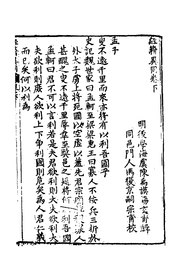 經籍異同卷下
明後學海虞陳禹謨錫玄甫譔
同邑門人馮復京嗣宗甫校
孟子
叟不遠千里而來亦將有以利吾國乎
史記魏世家曰孟軻至梁梁惠王曰寡人不佞兵三折於
外太子虜上將死國以空虛以羞先君宗廟社稷寡人
甚醜之叟不遠千里辱幸至弊邑之廷將何以利吾國
孟軻曰君不可以言利若是夫君欲利則大夫欲利大
夫欲利則庶人欲利上下爭利國則危矣為人君仁義
而已矣何以利為